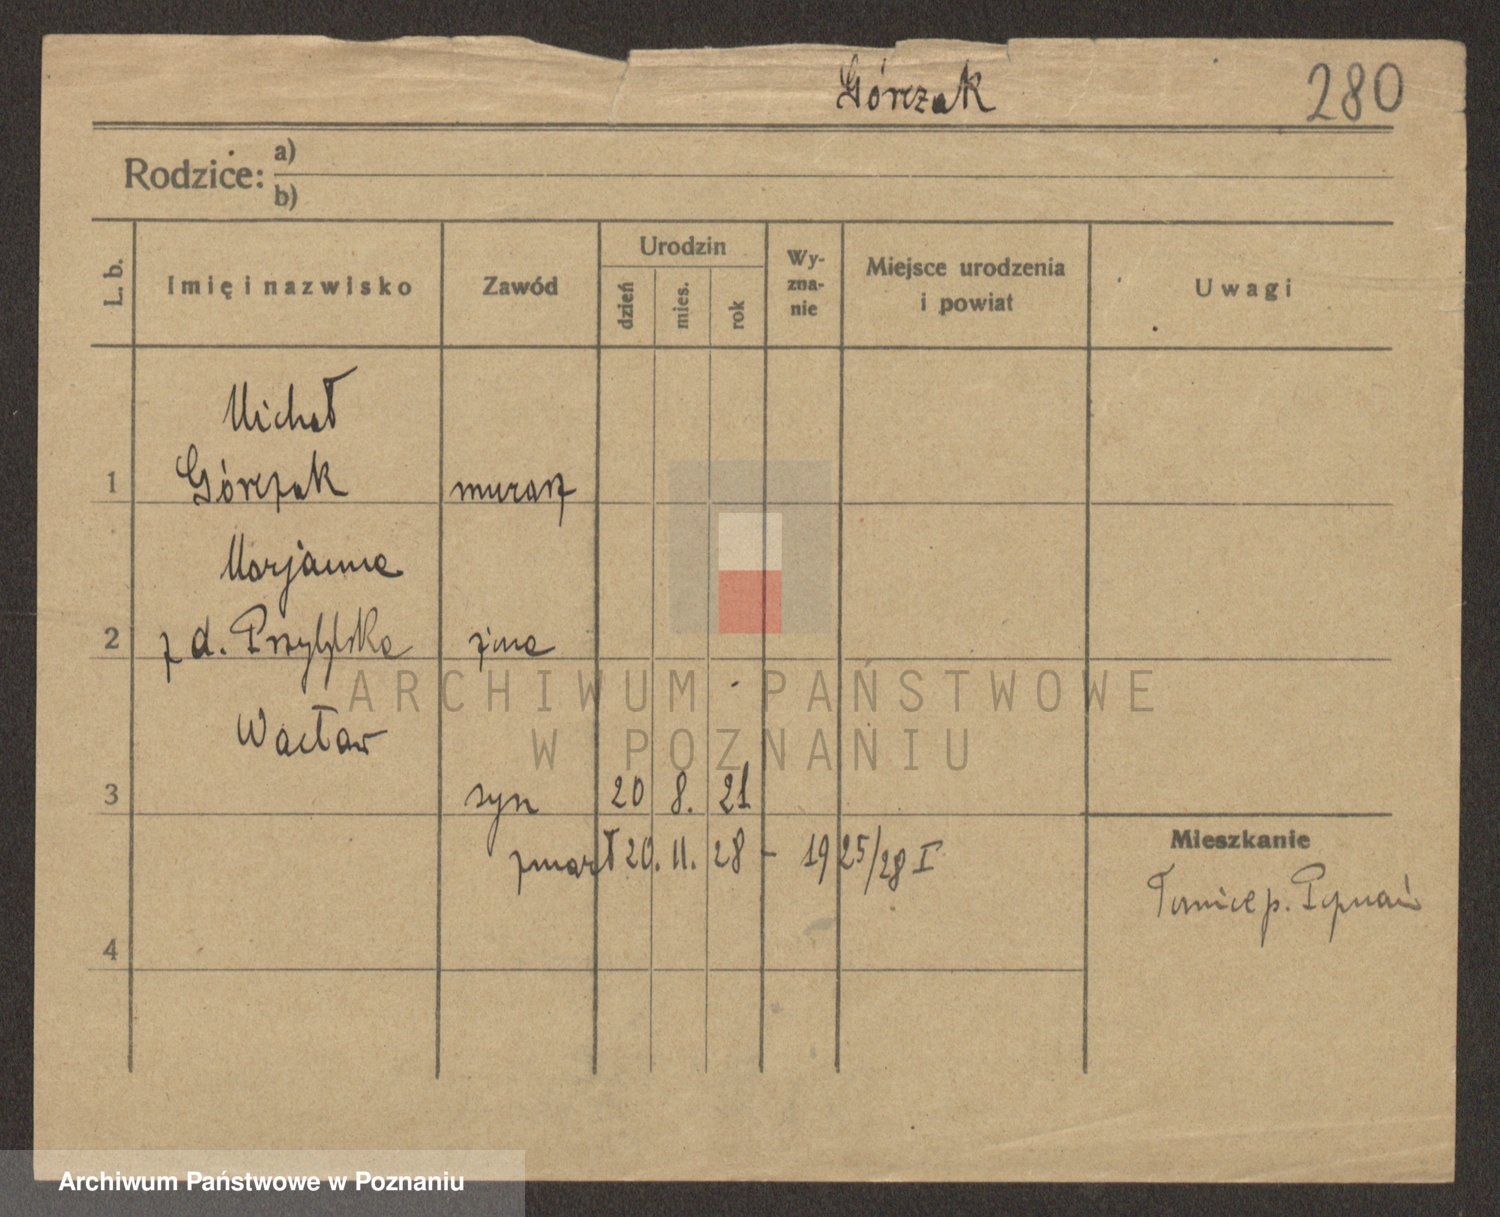 Górczak
280
Rodzice: a)
b)
L. b.
Imię i nazwisko
Zawód
Urodzin
dzień
mies.
rok
Wy-
zna-
nie
Miejsce urodzenia
i powiat
Uwagi
Michał
1 Górczak murarz
Marjanna
2 z d. Przybylska żona
Wacław
3 syn 20 8. 21
zmarł 20. 11. 28 – 1925/28 I
Mieszkanie
p. Poznań
4
ARCHIWUM PAŃSTWOWE
W POZNANIU
Archiwum Państwowe w Poznaniu